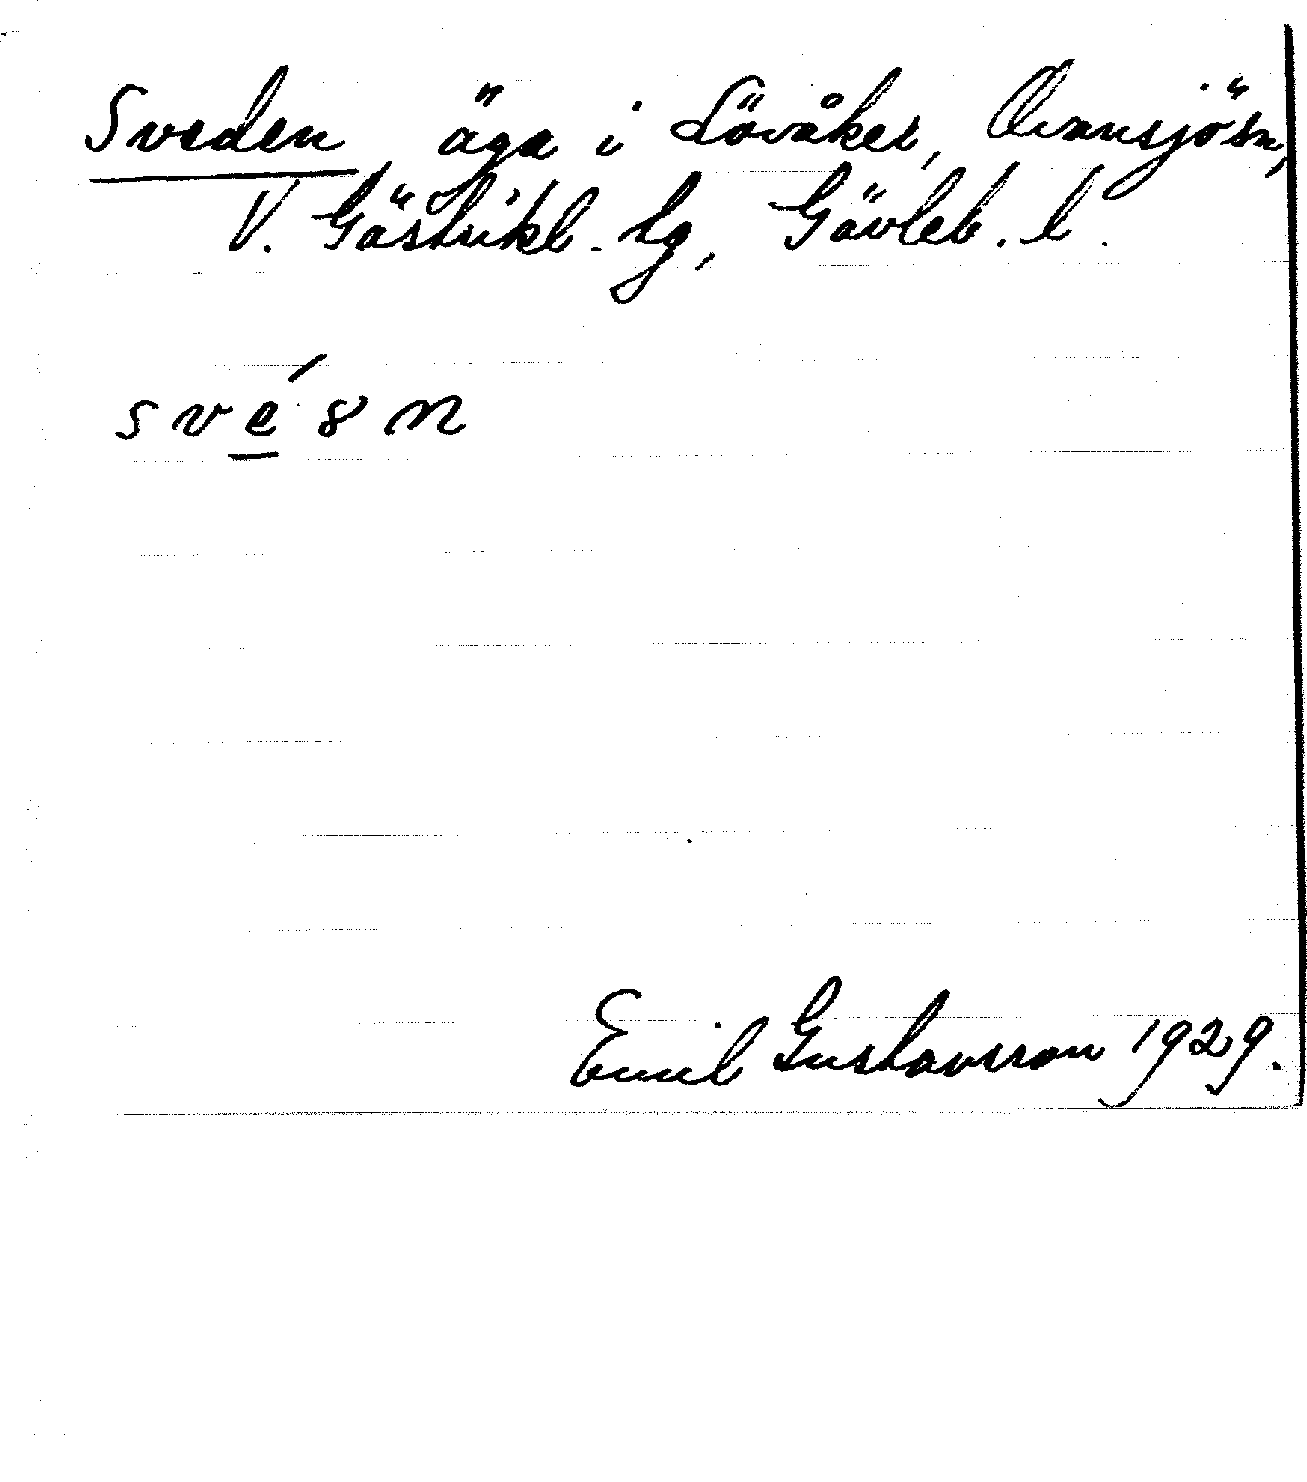 Sveden äga i Lövåker, Ovansjö sn,
V. Gästrikl. tg, Gävleb. l.
své8n
Emil Gustavsson 1929.